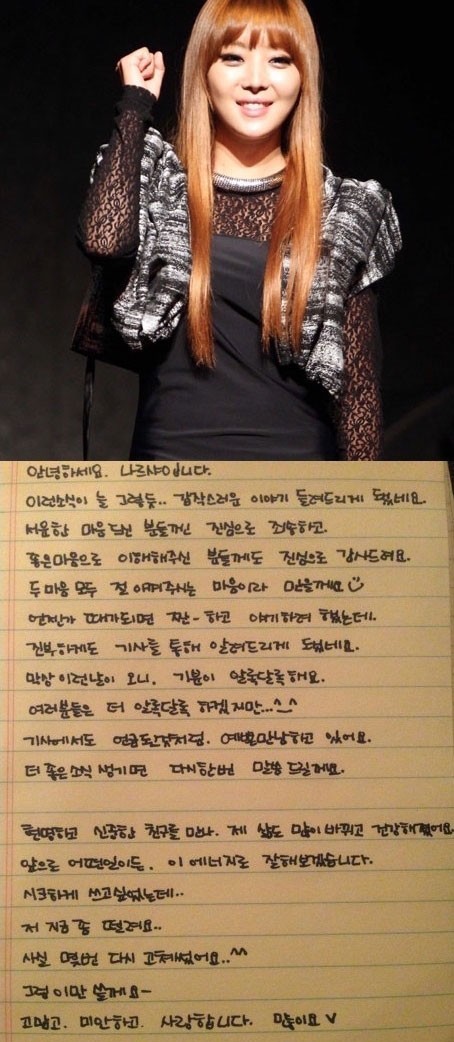 안녕하세요. 나르샤입니다.
이런소식이 늘 그렇듯.. 갑작스러운 이야기 들려드리게 됐네요.
서운한 마음드신 분들껜 진심으로 죄송하고.
좋은마음으로 이해해주신 분들께도 진심으로 감사드려요.
두마음 모두 절 아껴주시는 마음이라 믿을께요
언젠가 때가되면 짠-하고 얘기하려 했는데.
진부하게도 기사를 통해 알려드리게 됐네요.
막상 이런날이 오니, 기분이 알록달록해요.
여러분들은 더 알록달록 하겠지만...^_^
기사에서도 언급드린것처럼. 예쁜만남하고 있어요.
더 좋은소식 생기면 다시한번 말씀 드릴께요.
현명하고 신중한 친구를 만나. 제 삶도 많이 바뀌고 건강해졌어요.
앞으로 어떤일이든, 이 에너지로 잘해보겠습니다.
시크하게 쓰고싶었는데..
저 지금 좀 떨려요..
사실 몇번 다시 고쳐썼어요..^^
그럼 이만 쓸께요-
고맙고. 미안하고. 사랑합니다. 민둥이요 V